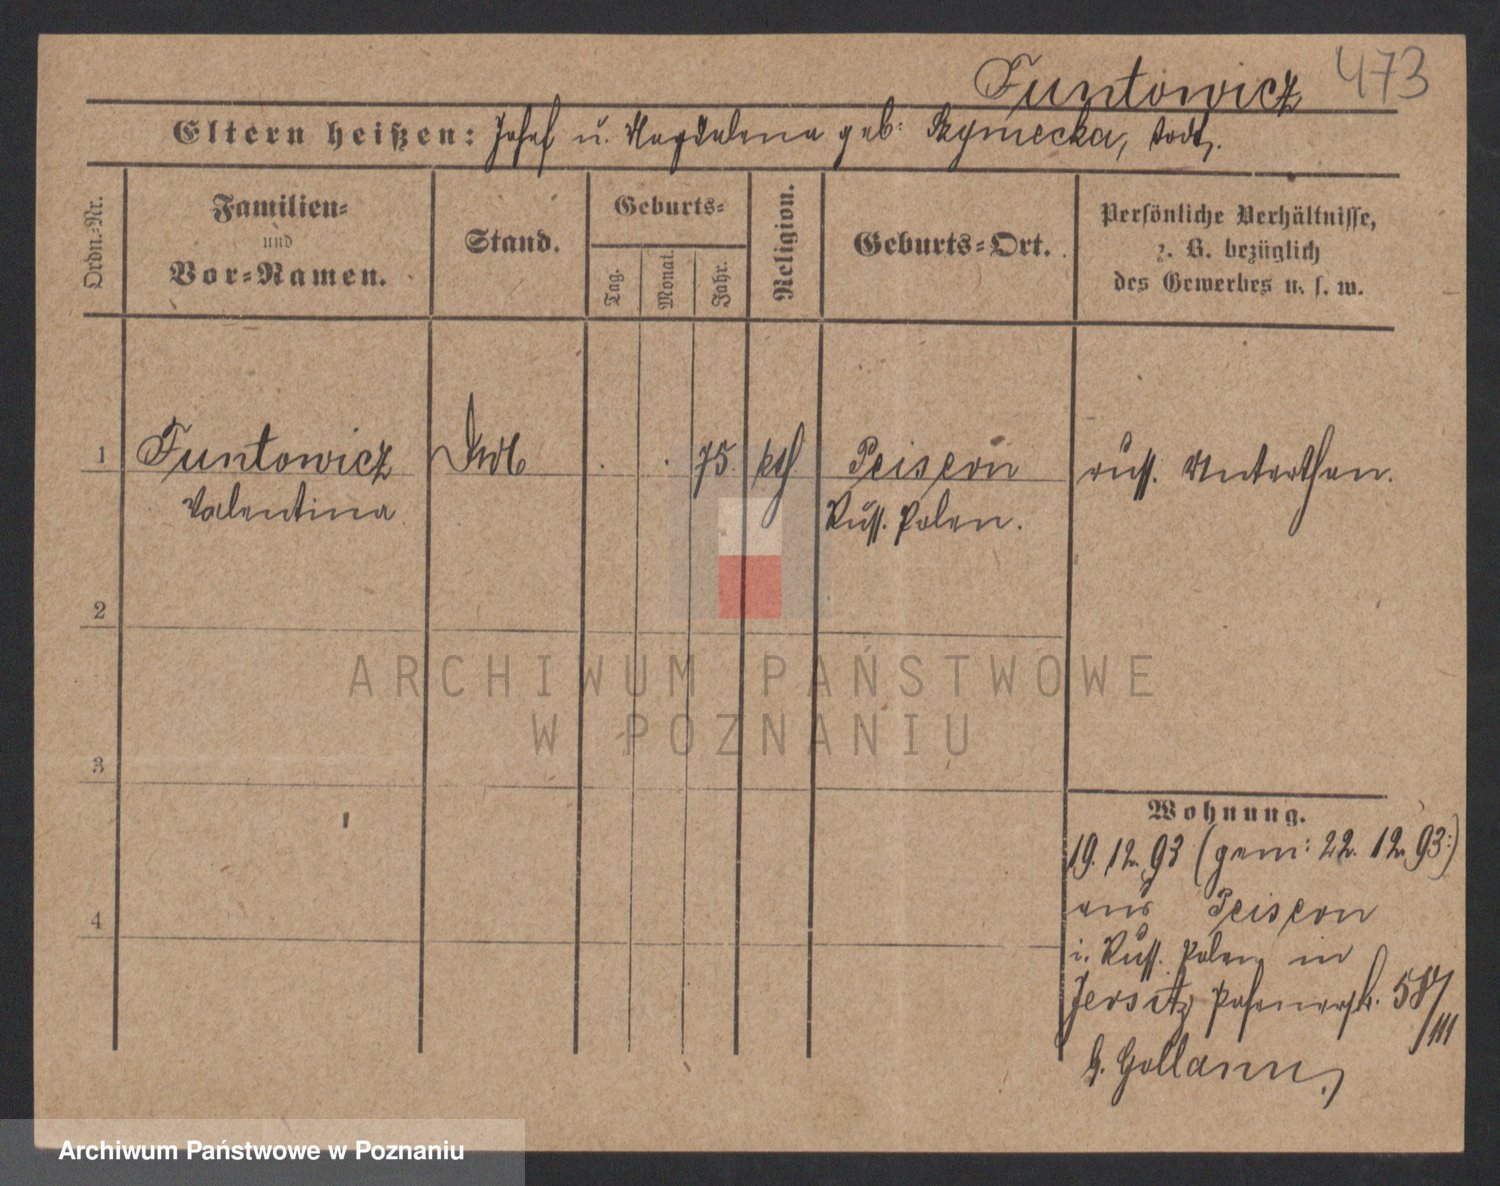 Funtowicz 473
Eltern heißen: Josef u. Magdalena geb: Szymecka, todt.
Ordn.-Nr.
Familien-
und
Vor-Namen.
Stand.
Geburts-
Tag.
Monat.
Jahr.
Religion.
Geburts-Ort.
Persönliche Verhältnisse,
z. B. bezüglich
des Gewerbes u. s. w.
1 Funtowicz . . 75. kth Peisern russ. Unterthan.
Valentina Russ. Polen.
2
ARCHIWUM PAŃSTWOWE
W POZNANIU
3
Wohnung.
19. 12. 93 (gem: 22. 12. 93:)
aus Peisern
4
i. Russ. Polen in
Jersitz Posenerstr. 58/III
b. Gollann
Archiwum Państwowe w Poznaniu